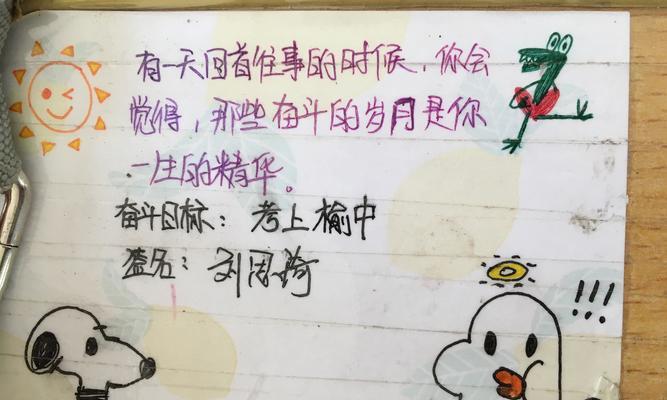 有一天回首往事的时候，你会
觉得，那些奋斗的岁月是你
一生的精华。
奋斗目标：考上榆中
签名：刘恩琦
!!!